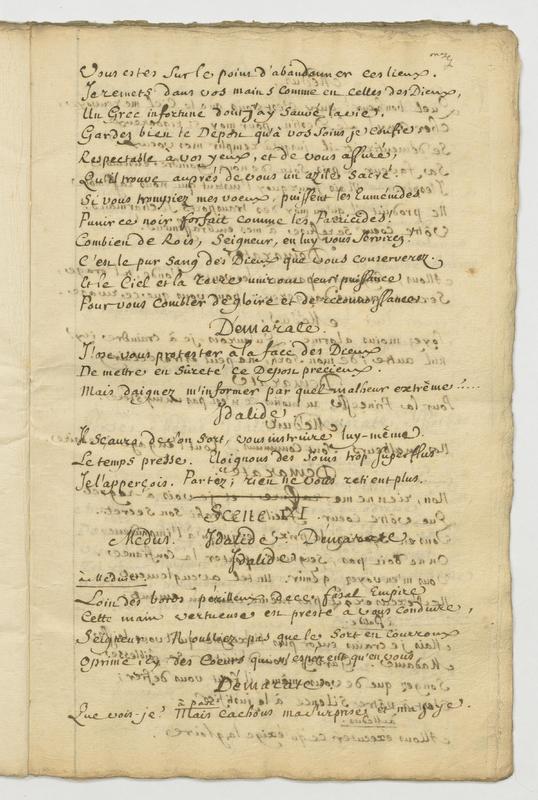 Vous estes sur le point d'abandonner ces lieux.
Je remets dans vos mains comme en celles des Dieux,
Un Grec infortuné dont j'ay sauvé la vie.
Gardez bien le Depost qu'à vos soins je
Respectable a vos yeux, et de vous assuré,
Qu'il trouve auprés de vous un azile sacré.
Si vous trompiez mes voeux, puissent les Euménides
Punir ce noir forfait comme les Parricides.
Combien de Rois, Seigneur, en luy vous servirez!
C'est le pur Sang des Dieux que vous conserverez.
Et le Ciel et la Terre uniront leur puissance
Pour vous combler de gloire et de reconnoissance.
Démarate.
J'ose vous protester à la face des Dieux
De mettre en sûreté ce Depost precieux.
Mais daignez m'informer par quel malheur extrême.....
Idalide
Il sçaura de son sort, vous instruire luy-même.
Le temps presse. Eloignons des soins trop superflus
Je l'apperçois. Partez; rien ne vous retient plus.
Scene III
Medus. Idalide. Démarate
Idalide
à Medus
Loin des bords perilleux de ce fatal Empire
Cette main vertueuse est preste à vous conduire,
Seigneur. N'oubliez pas que le Sort en courroux
Opprime icy des coeurs qui n'esperent qu'en vous.
Démarate.
à part
Que vois-je! Mais cachons ma surprise et ma joye.